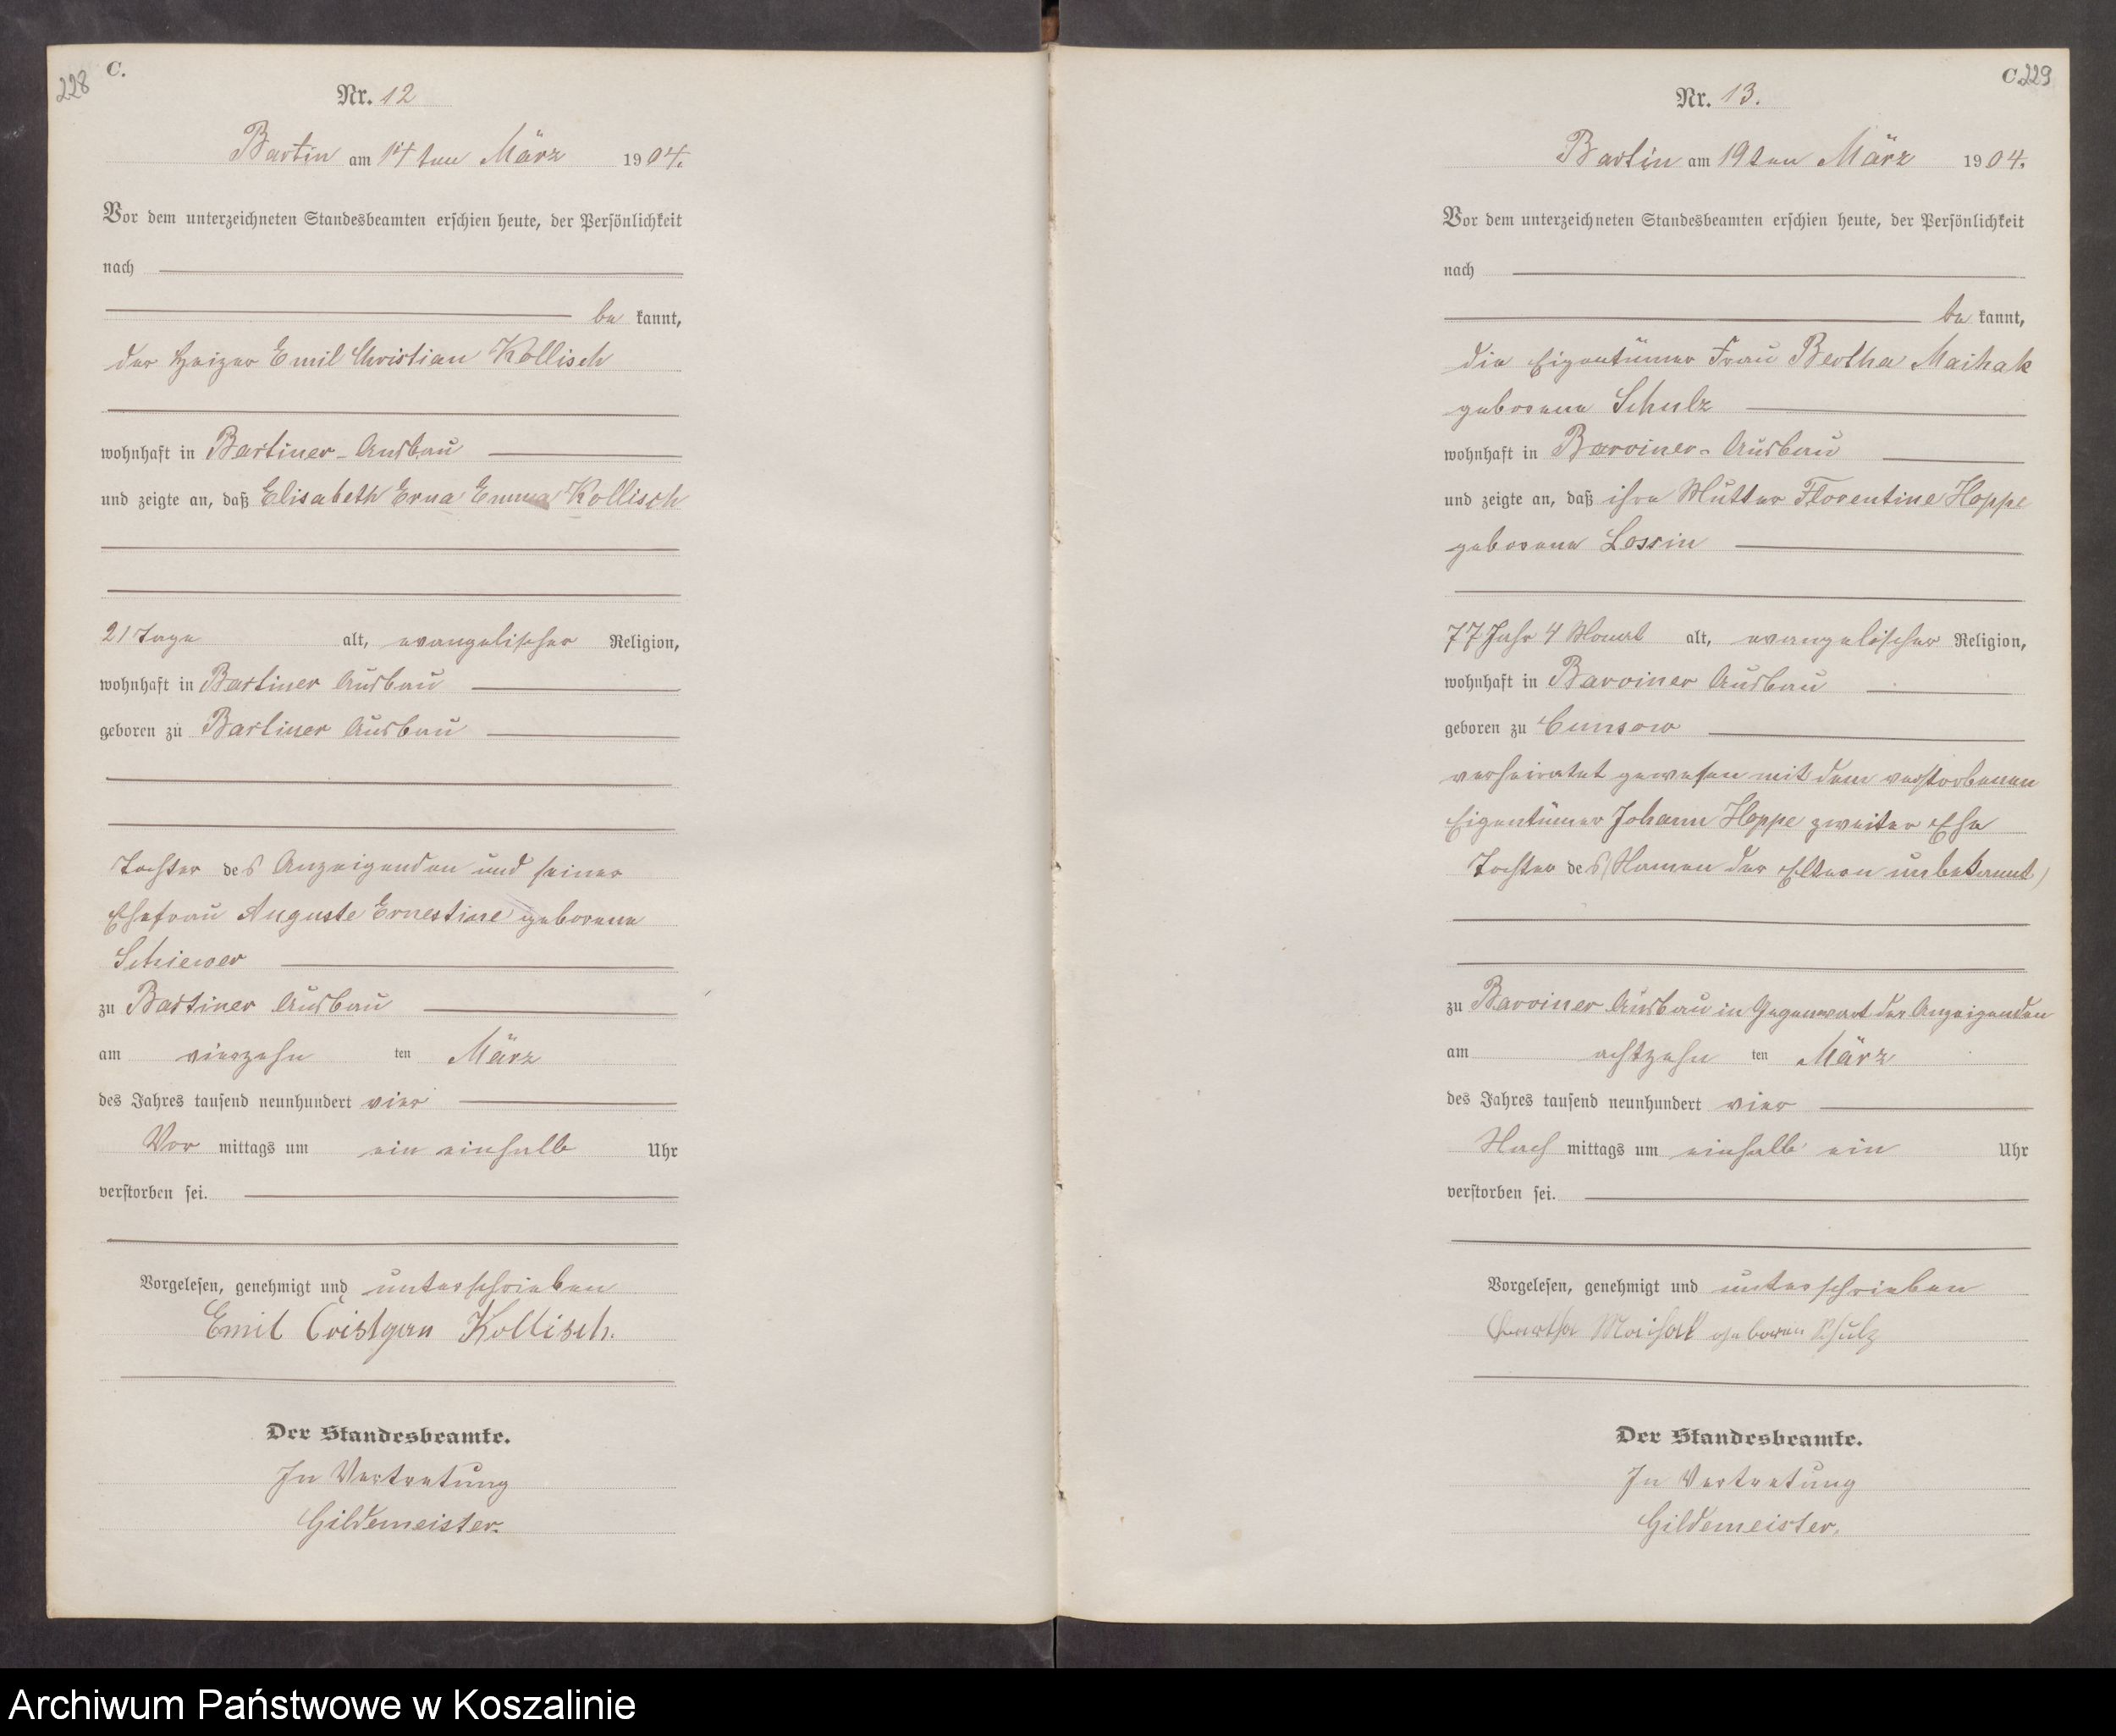 228
C.
Nr. 12
Bartin am 14ten März 1904.
Vor dem unterzeichneten Standesbeamten erschien heute, der Persönlichkeit
nach
be kannt,
der Heizer Emil Christian Kollisch
wohnhaft in Bartiner-Ausbau
und zeigte an, daß Elisabeth Erna Emma Kollisch
21 Tage alt, evangelischer Religion,
wohnhaft in Bartiner Ausbau
geboren zu Bartiner Ausbau
Tochter des Anzeigenden und seiner
Ehefrau Auguste Ernestine geborene
Schiewer
zu Bartiner Ausbau
am vierzehn ten März
des Jahres tausend neunhundert vier
Vor mittags um ein einhalb Uhr
verstorben sei.
Vorgelesen, genehmigt und unterschrieben
Emil Kollisch.
Der Standesbeamte.
In Vertretung
Gildemeister.
C. 229
Nr. 13.
Bartin am 19ten März 1904.
Vor dem unterzeichneten Standesbeamten erschien heute, der Persönlichkeit
nach
be kannt,
die Eigentümer Frau Bertha Maihak
geborene Schulz
wohnhaft in Barviner-Ausbau
und zeigte an, daß ihre Mutter Florentine Hoppe
geborene Lossin
77 Jahr 4 Monat alt, evangelischer Religion,
wohnhaft in Barviner Ausbau
geboren zu Cunsow
verheiratet gewesen mit dem verstorbenen
Eigentümer Johann Hoppe zweiter Ehe
Tochter des (Namen der Eltern unbekannt)
zu Barviner Ausbau in Gegenwart der Anzeigenden
am achtzehn ten März
des Jahres tausend neunhundert vier
Nach mittags um einhalb ein Uhr
verstorben sei.
Vorgelesen, genehmigt und unterschrieben
Maihak geboren Schulz
Der Standesbeamte.
In Vertretung
Gildemeister.
Archiwum Państwowe w Koszalinie